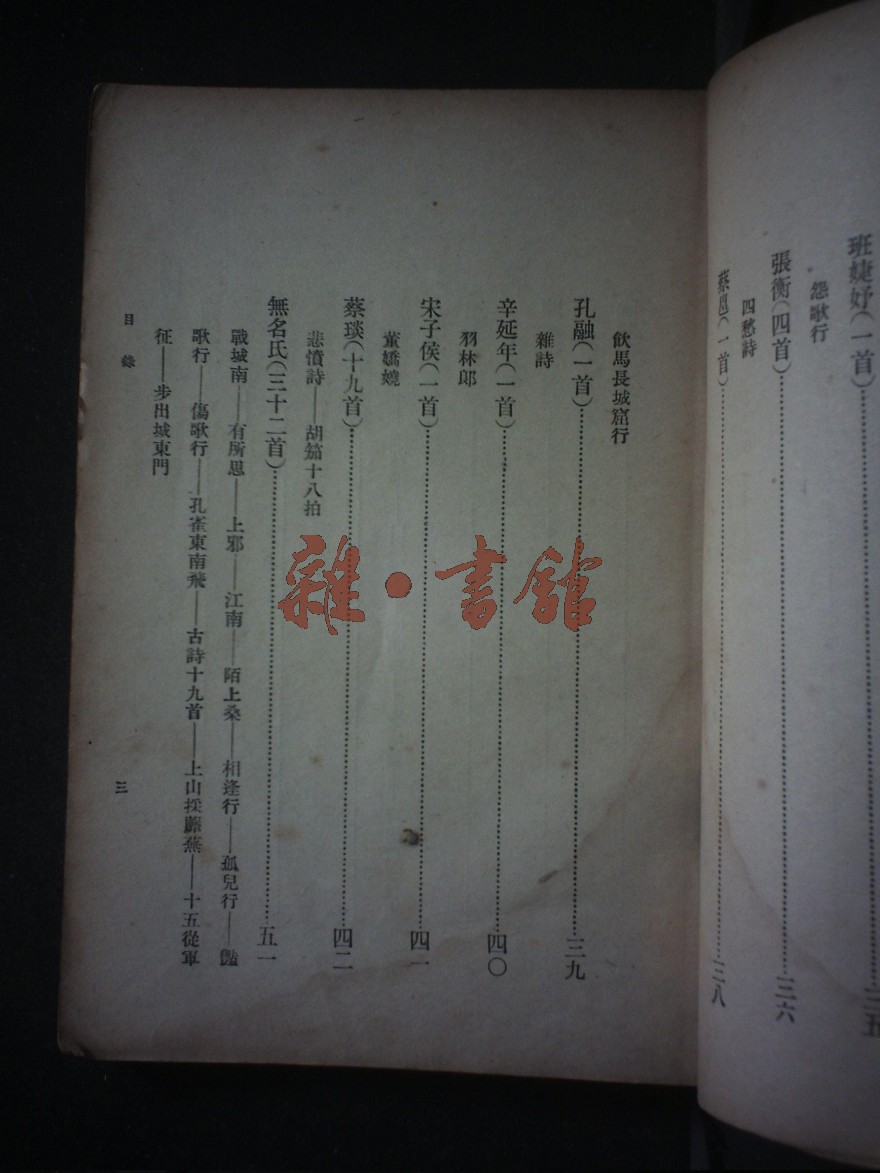 班婕妤(一首)……………………三五
怨歌行
張衡(四首)……………………三六
四愁詩
蔡邕(一首)……………………三八
飲馬長城窟行
孔融(一首)……………………三九
雜詩
辛延年(一首)……………………四〇
羽林郎
宋子侯(一首)……………………四一
董嬌嬈
蔡琰(十九首)……………………四二
悲憤詩——胡笳十八拍
無名氏(三十二首)……………………五一
戰城南——有所思——上邪——江南——陌上桑——相逢行——孤兒行——豔
歌行——傷歌行——孔雀東南飛——古詩十九首——上山採蘼蕪——十五從軍
征——步出城東門
目錄
三
雜·書館